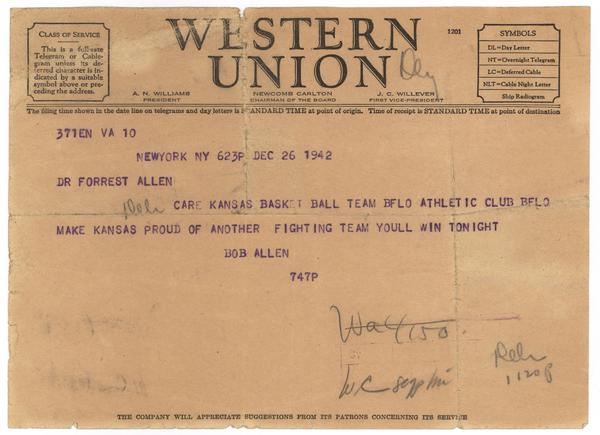 CLASS OF SERVICE
This is a full-rate
Telegram or Cable-
gram unless its de-
ferred character is in-
dicated by a suitable
symbol above or pre-
ceding the address.
WESTERN
UNION
1201
A. N. WILLIAMS
PRESIDENT
NEWCOMB CARLTON
CHAIRMAN OF THE BOARD
J. C. WILLEVER
FIRST VICE-PRESIDENT
SYMBOLS
DL=Day Letter
NT=Overnight Telegram
LC=Deferred Cable
NLT=Cable Night Letter
Ship Radiogram
The filing time shown in the date line on telegrams and day letters is STANDARD TIME at point of origin. Time of receipt is STANDARD TIME at point of destination
371EN VA 10
NEWYORK NY 623P DEC 26 1942
DR FORREST ALLEN
CARE KANSAS BASKET BALL TEAM BFLO ATHLETIC CLUB BFLO
MAKE KANSAS PROUD OF ANOTHER FIGHTING TEAM YOULL WIN TONIGHT
BOB ALLEN
747P
1120P
THE COMPANY WILL APPRECIATE SUGGESTIONS FROM ITS PATRONS CONCERNING ITS SERVICE